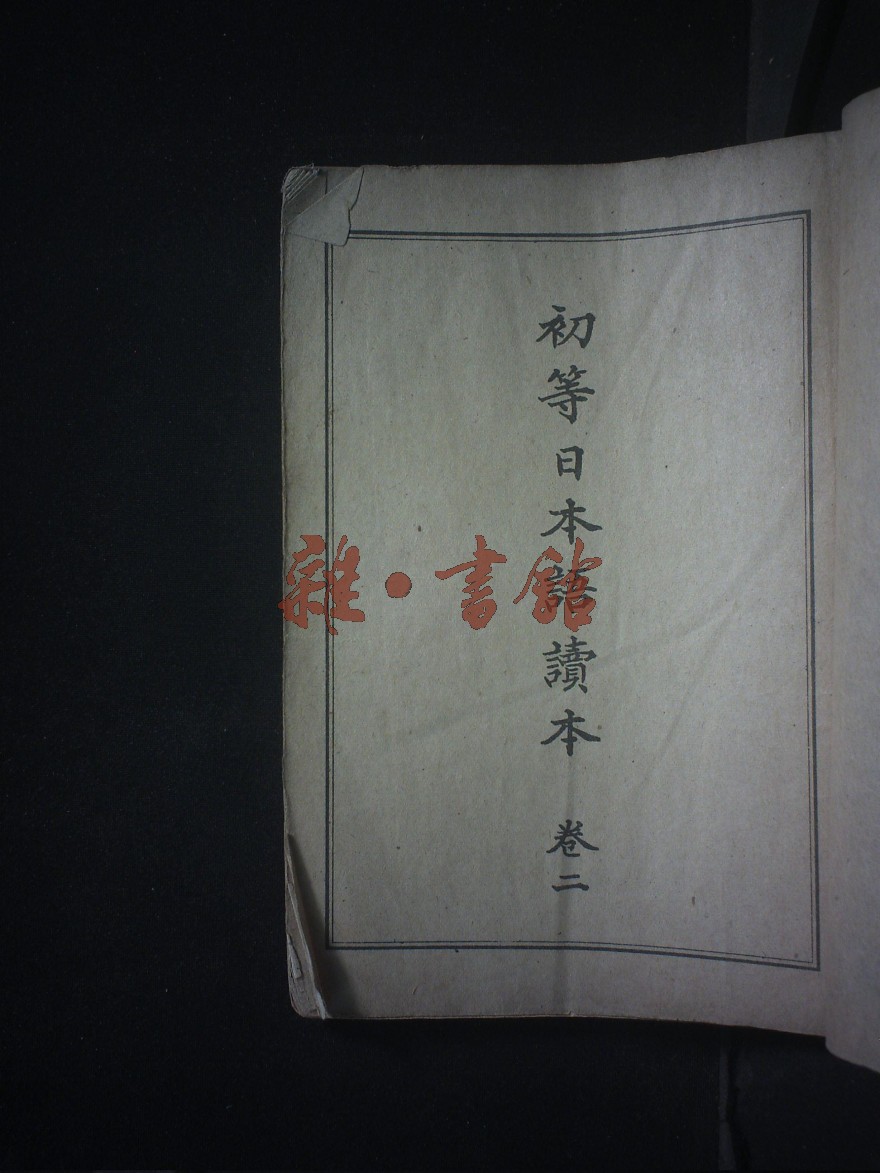 初等日本語讀本 卷二
雜·書館